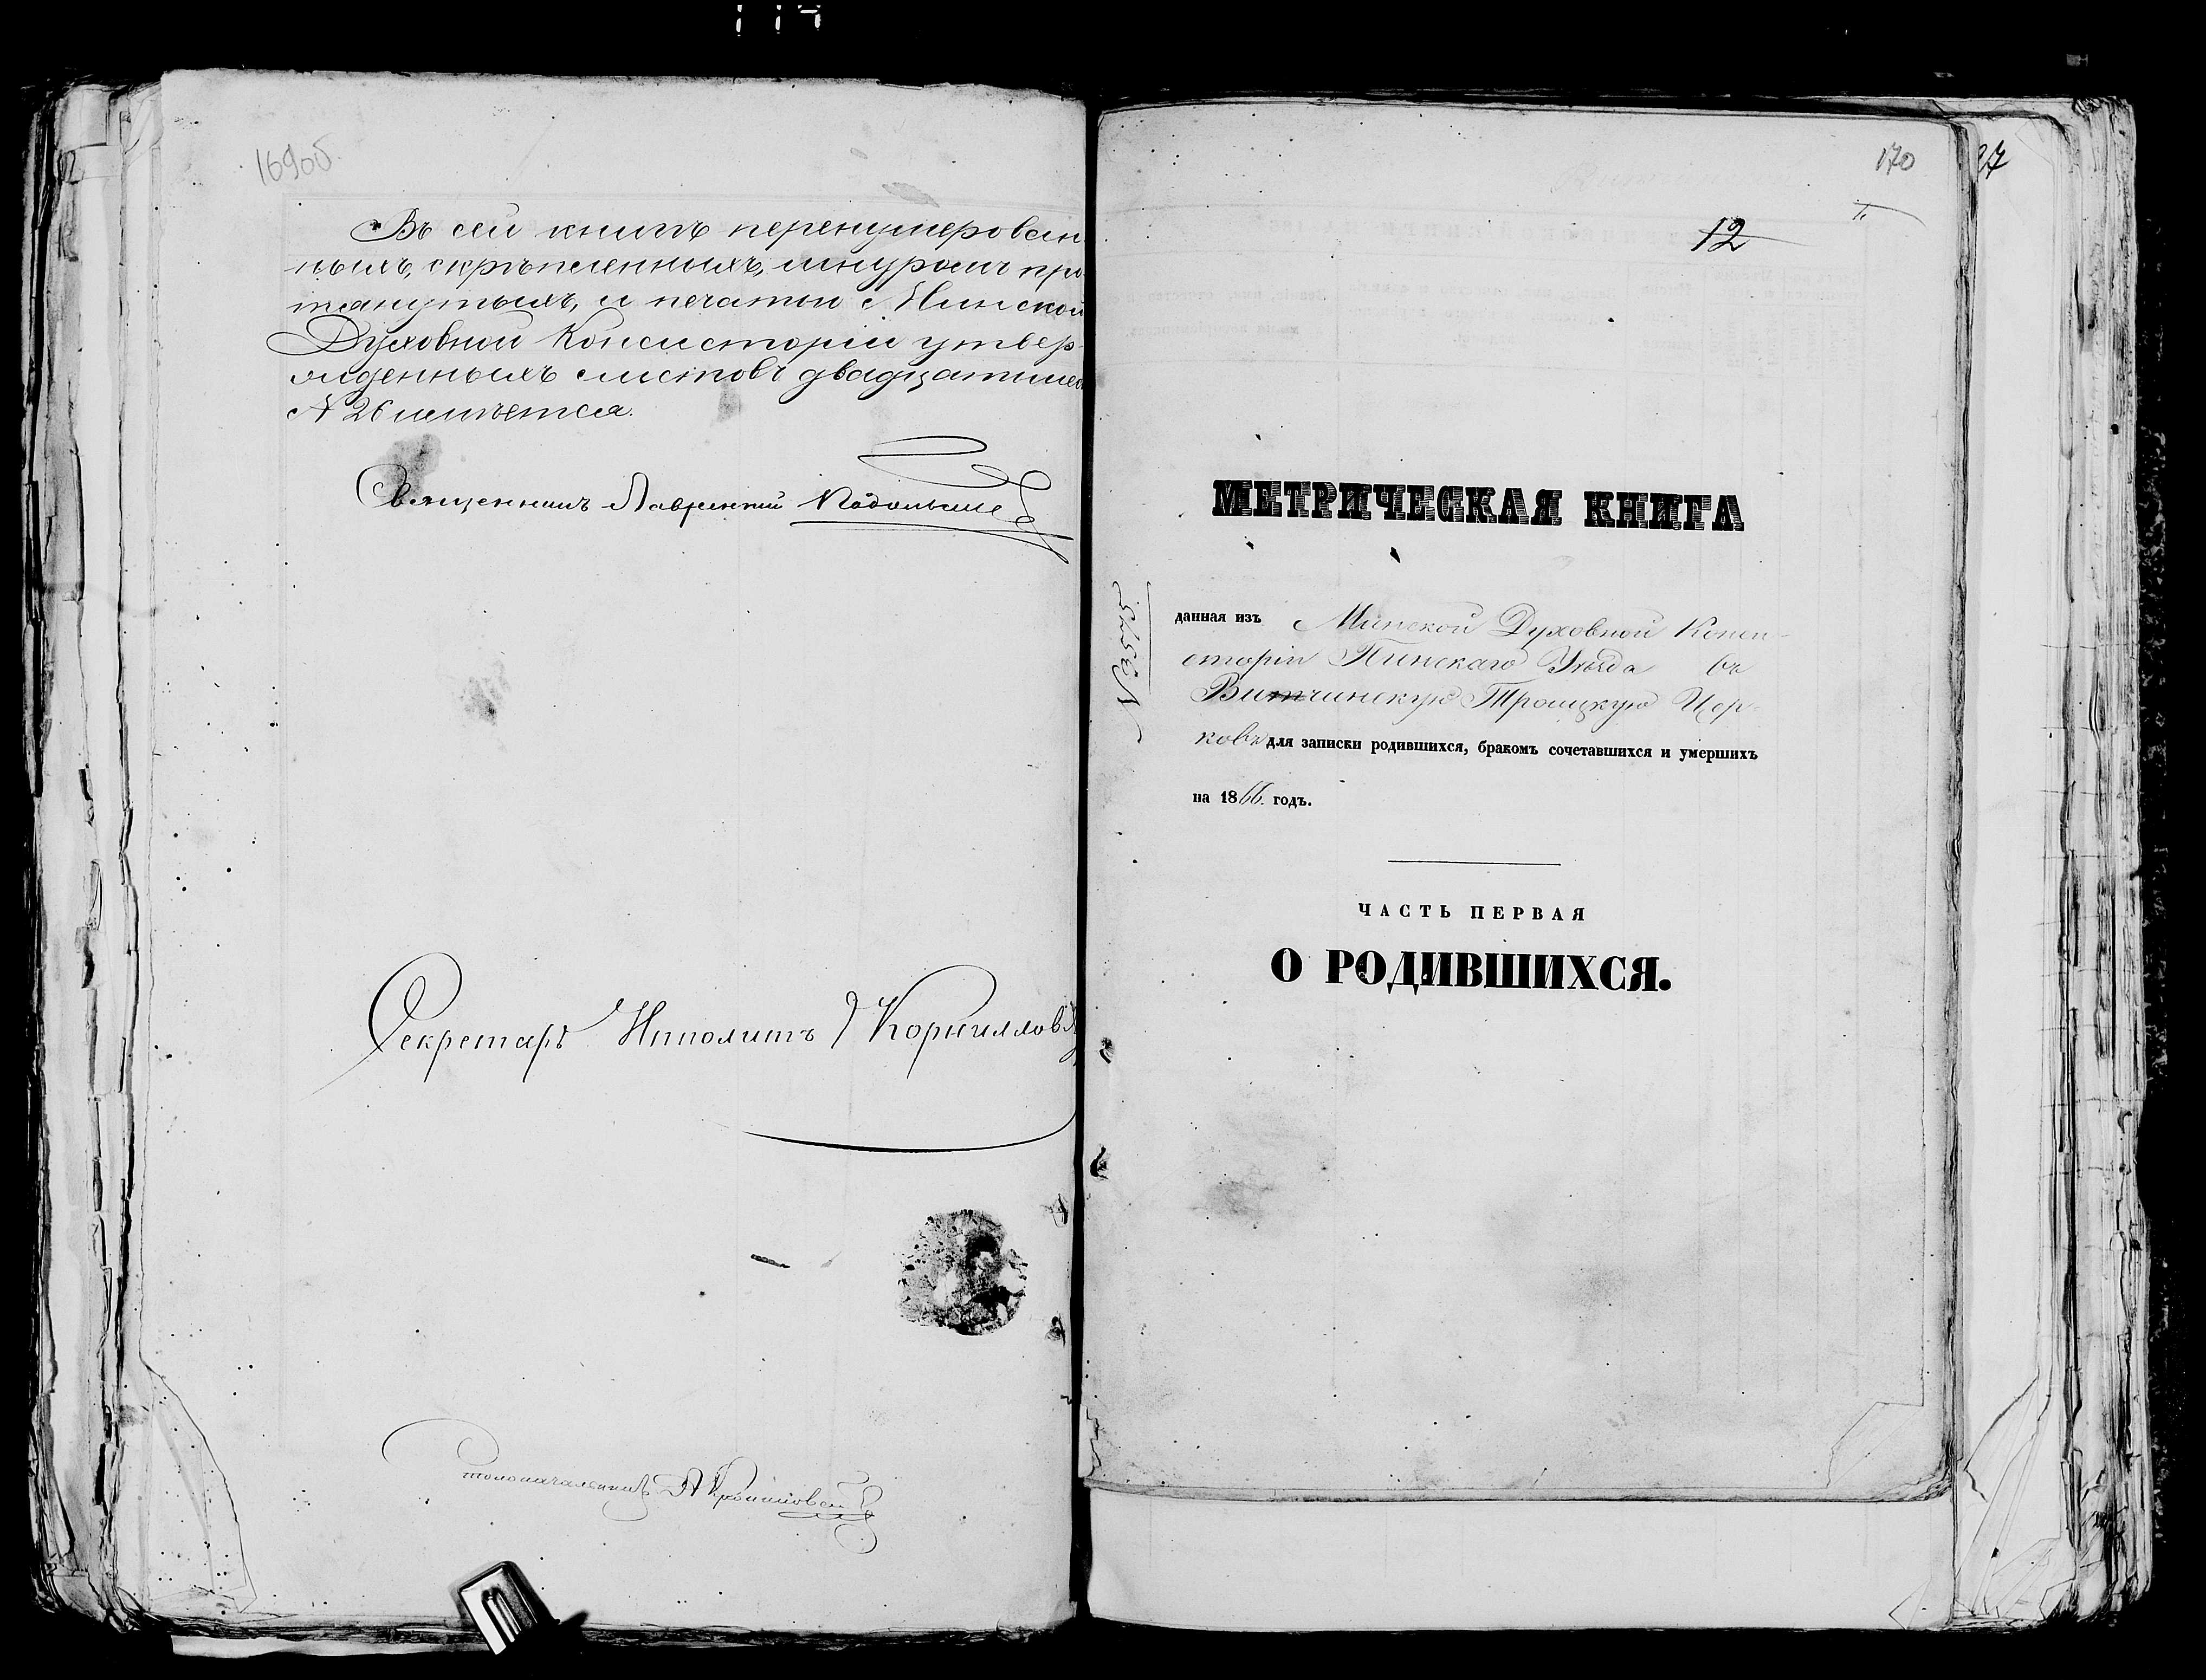 169об.
Въ сей книгѣ перенумерован
ныхъ, скрѣпленныхъ, шнуромъ про
тянутыхъ, и печатью Минской
Духовной Консисторіи утвер
жденныхъ листовъ двадцатьшес
№ 26 имѣется.
Священникъ Лаврентий
Секретарь Ипполитъ Корнилов
столоначальникъ
170
27
1.
12
МЕТРИЧЕСКАЯ КНИГА
данная изъ Минской Духовной Конси-
сторіи Пинскаго Уѣзда въ
Витчинскую Троицкую Цер-
ковь для записки родившихся, бракомъ сочетавшихся и умершихъ
на 1866. годъ.
ЧАСТЬ ПЕРВАЯ
О РОДИВШИХСЯ.